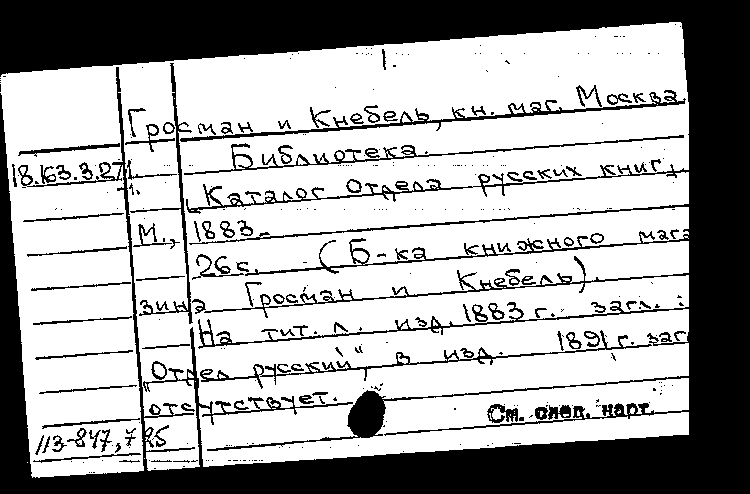 1.
Гросман и Кнебель, кн. маг. Москва.
Библиотека.
18.163.3.271.
Каталог отдела русских книг.
М., 1883-
26с. (Б-ка книжного мага
зина Гросман и Кнебель).
На тит. л. изд. 1883 г. загл. :
"Отдел русский", в изд. 1891 г. заг
отсутствует.
См. след. карт.
113-847,785